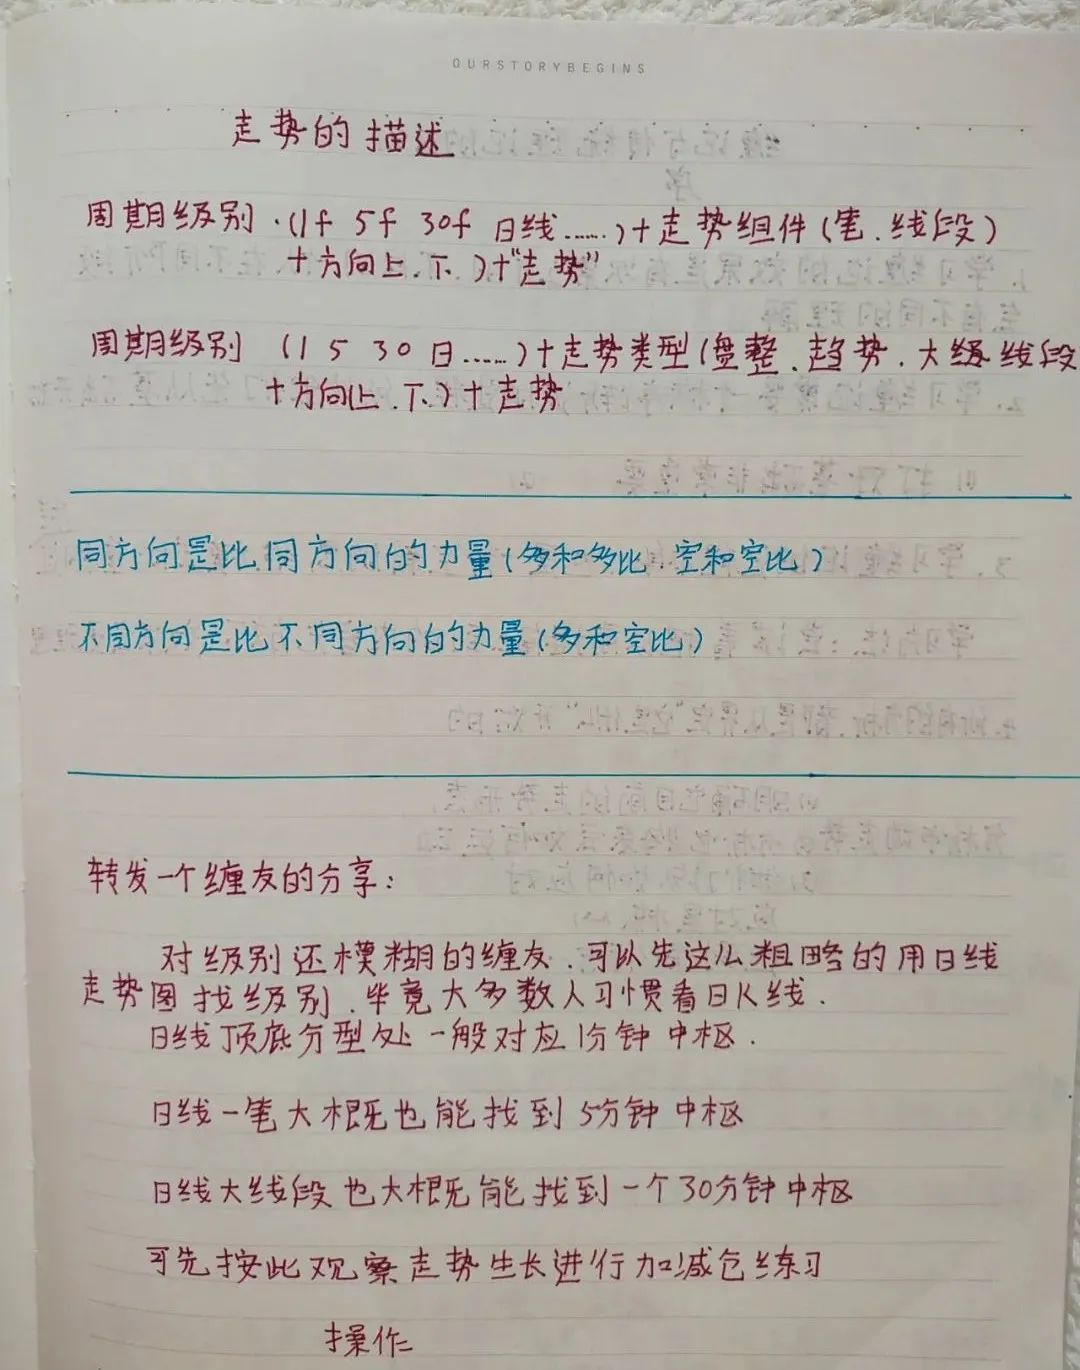 OURSTORYBEGINS
走势的描述
周期级别.(1f 5f 30f 日线……)+走势组件(笔.线段)
+方向上.下.)+"走势"
周期级别 (1 5 30 日……)+走势类型(盘整.趋势.大级线段
+方向(上.下.)+走势
同方向是比同方向的力量(多和多比.空和空比)
不同方向是比不同方向的力量(多和空比)
转发一个缠友的分享:
对级别还模糊的缠友.可以先这么粗略的用日线
走势图找级别.毕竟大多数人习惯看日K线.
日线顶底分型处一般对应1分钟中枢.
日线一笔大概也能找到5分钟中枢
日线大线段也大概能找到一个30分钟中枢
可先按此观察走势生长进行加减仓练习
操作